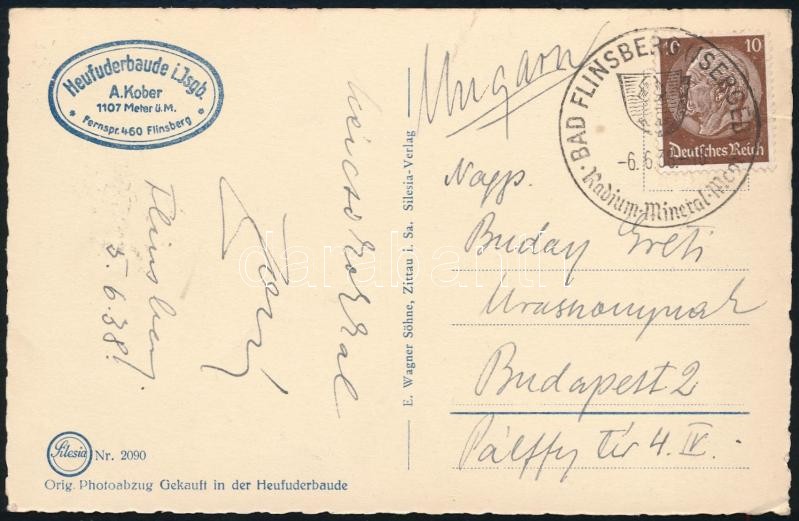 Heufuderbaude i. Isgb.
A. Kober
1107 Meter ü.M.
Fernspr. 460 Flinsberg
Flinsberg
5.6.38!
E. Wagner Söhne, Zittau i. Sa. Silesia-Verlag
Ungarn
BAD FLINSBERG (ISERGEB.
-6.6.3
Radium-Mineral-Moor
10 10
Deutsches Reich
Nagys.
Buday Greti
Urasszonynak
Budapest 2
Pálffy tér 4. IV.
Silesia Nr. 2090
Orig. Photoabzug Gekauft in der Heufuderbaude
darabanth